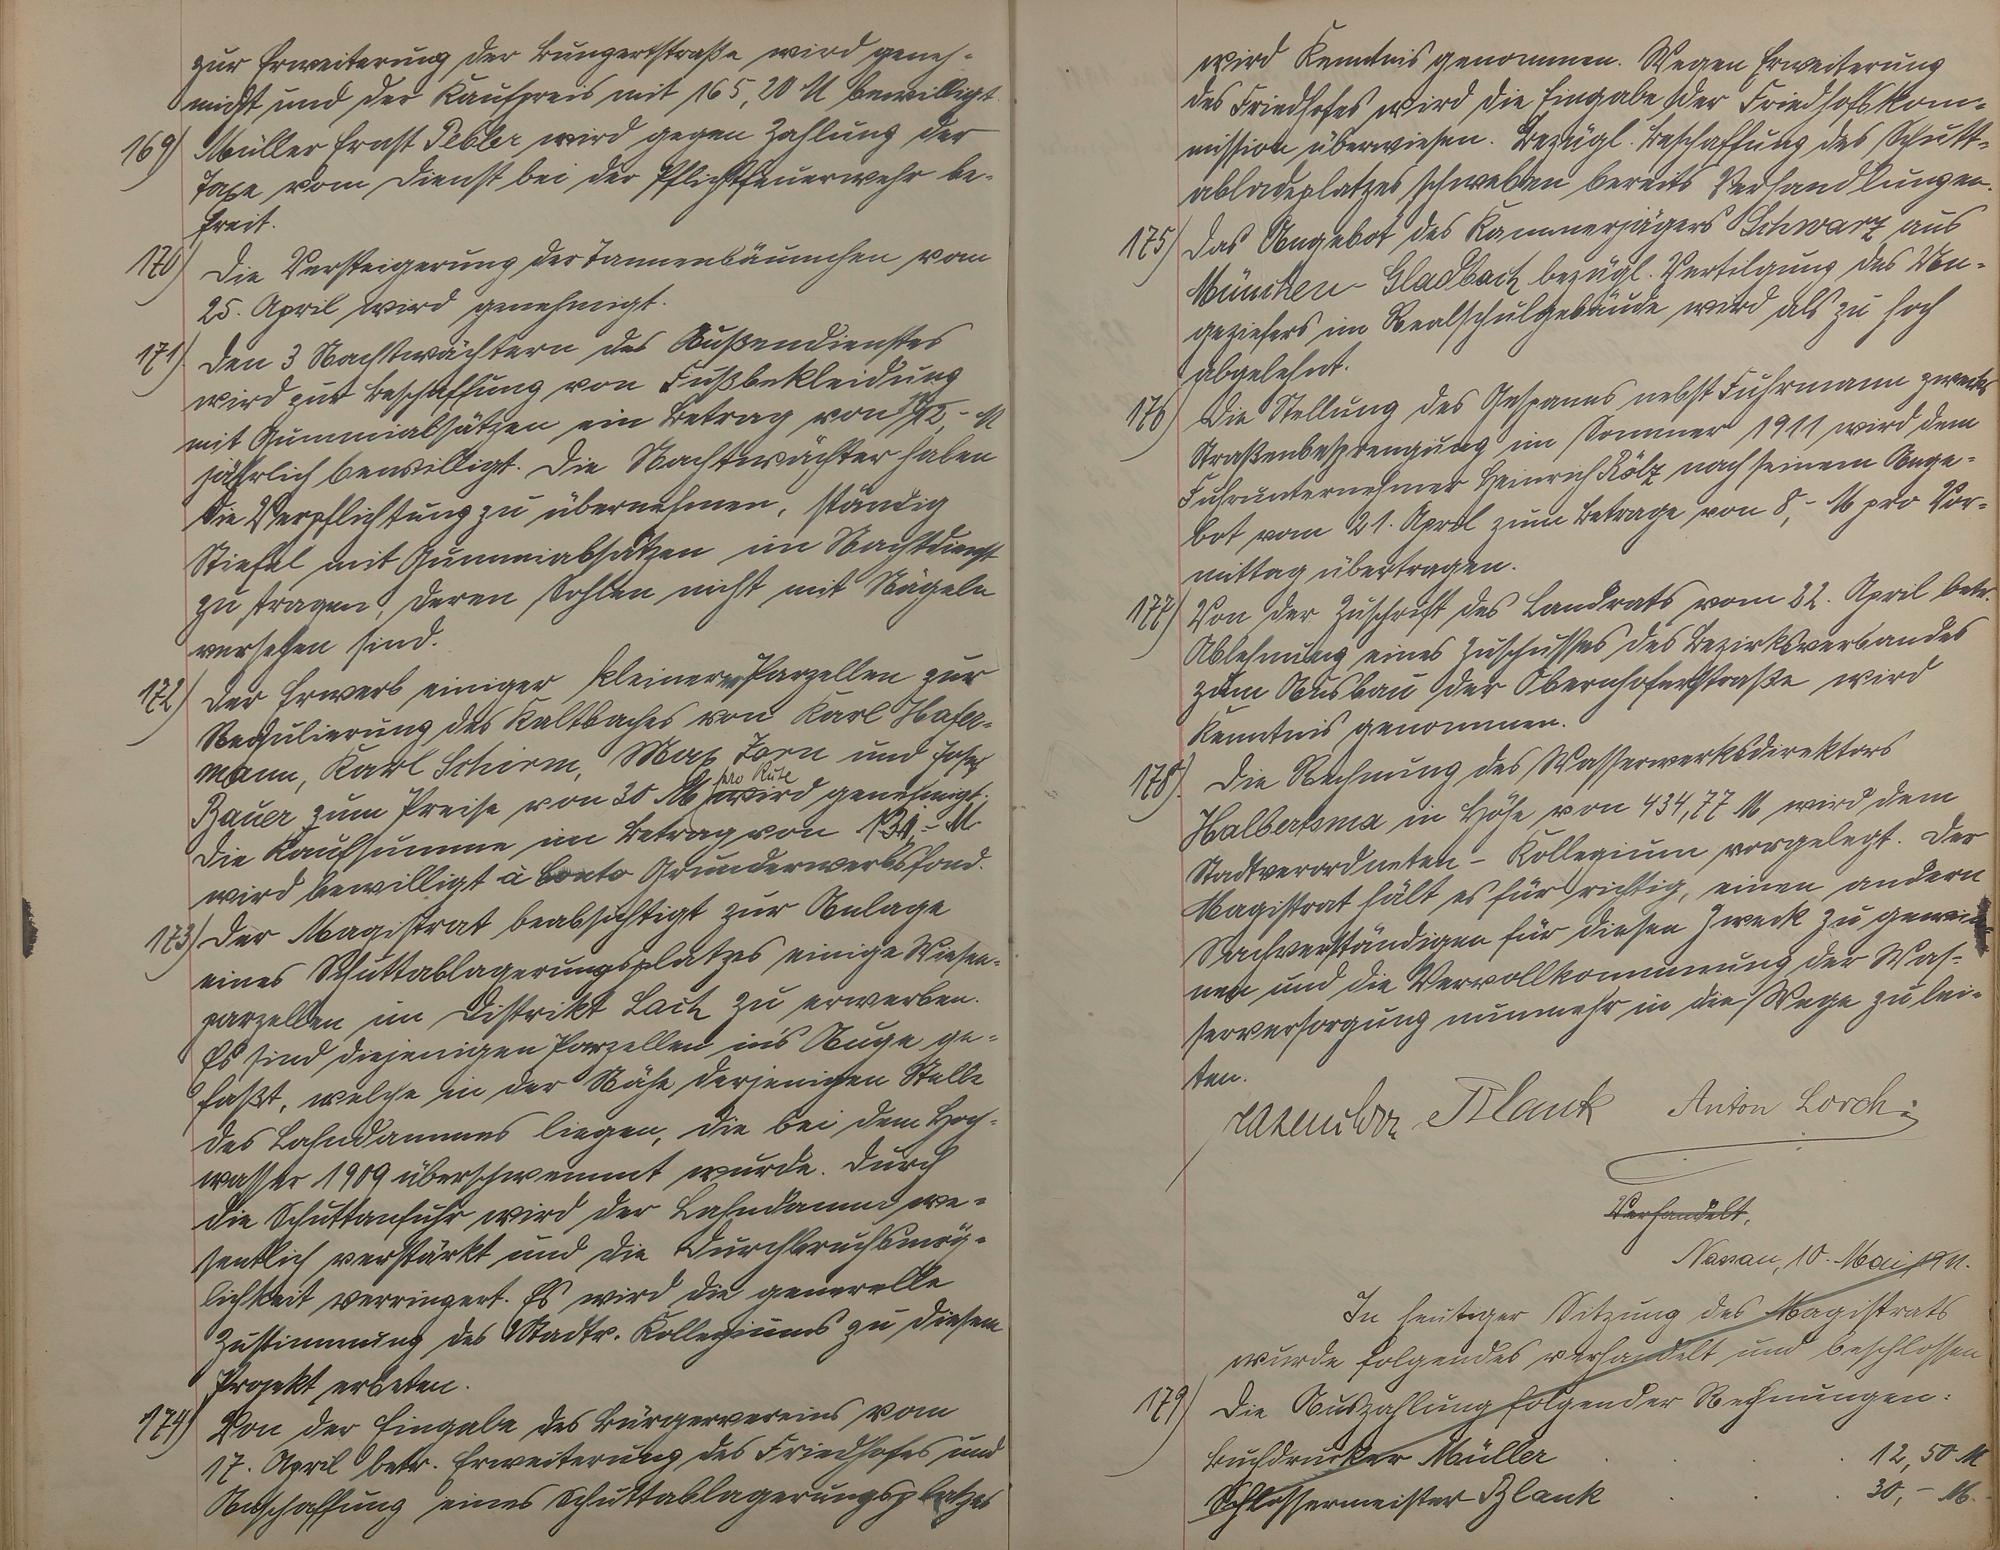 zur Erweiterung der Bungertstraße wird geneh-
migt und der Kaufpreis mit 165,20 M bewilligt.
169) Müller Ernst Pebler wird gegen Zahlung der
Taxe vom Dienst bei der Pflichtfeuerwehr be-
freit.
170) Die Versteigerung der Tannenbäumchen vom
25. April wird genehmigt.
171) Den 3 Nachtwächtern des Außendienstes
wird zur Beschaffung von Fußbekleidung
mit Gummiabsätzen ein Betrag von M
jährlich bewilligt. Die Nachtwächter haben
die Verpflichtung zu übernehmen, ständig
Stiefel mit Gummiabsätzen im Nachtdienst
zu tragen, deren Sohlen nicht mit Nägeln
versehen sind.
172) Der Erwerb einiger kleiner Parzellen zur
Regulierung des Kaltbaches von Karl Hafer-
mann, Karl Schirm, Max Zorn und Josef
pro Rute
Bauer zum Preise von 30 M wird genehmigt.
Die Kaufsumme im Betrag von M
wird bewilligt à Conto Grunderwerbsfond.
173) Der Magistrat beabsichtigt zur Anlage
eines Schuttablagerungsplatzes einige Wiesen-
parzellen im Distrikt Lach zu erwerben.
Es sind diejenigen Parzellen ins Auge ge-
faßt, welche in der Nähe derjenigen Stelle
des Lahndammes liegen, die bei dem Hoch-
wasser 1909 überschwemmt wurde. Durch
die Schuttanfuhr wird der Lahndamm we-
sentlich verstärkt und die Durchbruchsmög-
lichkeit verringert. Es wird die generelle
Zustimmung des Stadtv. Kollegiums zu diesem
Projekt erbeten.
174) Von der Eingabe des Bürgervereins vom
17. April betr. Erweiterung des Friedhofes und
Anschaffung eines Schuttablagerungsplatzes
wird Kenntnis genommen. Wegen Erweiterung
des Friedhofes wird die Eingabe der Friedhofskom-
mission überwiesen. Bezügl. Beschaffung des Schutt-
abladeplatzes schweben bereits Verhandlungen.
175) Das Angebot des Kammerjägers Schwarz aus
München-Gladbach bezügl. Vertilgung des Un-
geziefers im Realschulgebäude wird als zu hoch
abgelehnt.
176) Die Stellung des Gespanns nebst Fuhrmann zwecks
Straßenbesprengung im Sommer 1911 wird dem
Fuhrunternehmer Heinrich Kölz nach seinem Ange-
bot vom 21. April zum Betrage von 8,- M pro Vor-
mittag übertragen.
177) Von der Zuschrift des Landrats vom 22. April betr.
Ablehnung eines Zuschusses des Bezirksverbandes
zum Ausbau der Obernhoferstraße wird
Kenntnis genommen.
178) Die Rechnung des Wasserwerksdirektors
Halbertsma in Höhe von 434,77 M wird dem
Stadtverordneten-Kollegium vorgelegt. Der
Magistrat hält es für richtig, einen andern
Sachverständigen für diesen Zweck zu gewin-
nen und die Vervollkommnung der Was-
serversorgung nunmehr in die Wege zu lei-
ten.
Blank Anton Lorch
Verhandelt,
Nassau, 10. Mai 1911.
In heutiger Sitzung des Magistrats
wurde folgendes verhandelt und beschlossen
179) Die Auszahlung folgender Rechnungen:
Buchdrucker Müller . . . 12,50 M
Schlossermeister Blank . . . 30,- M.